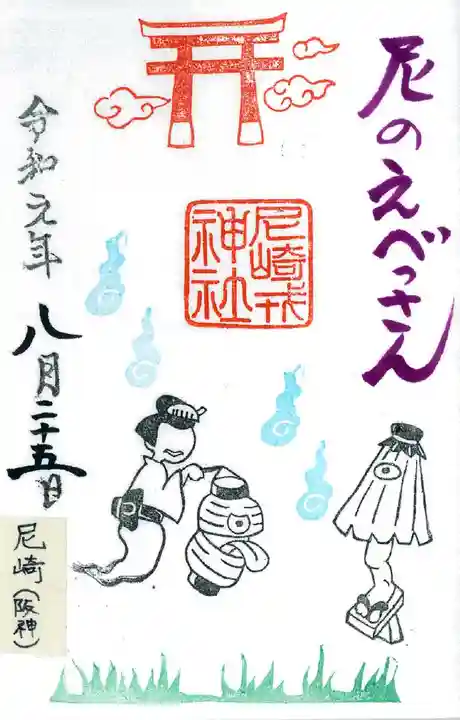 尼のえべっさん
尼崎戎
神社
令和元年
八月二十五日
尼崎(阪神)